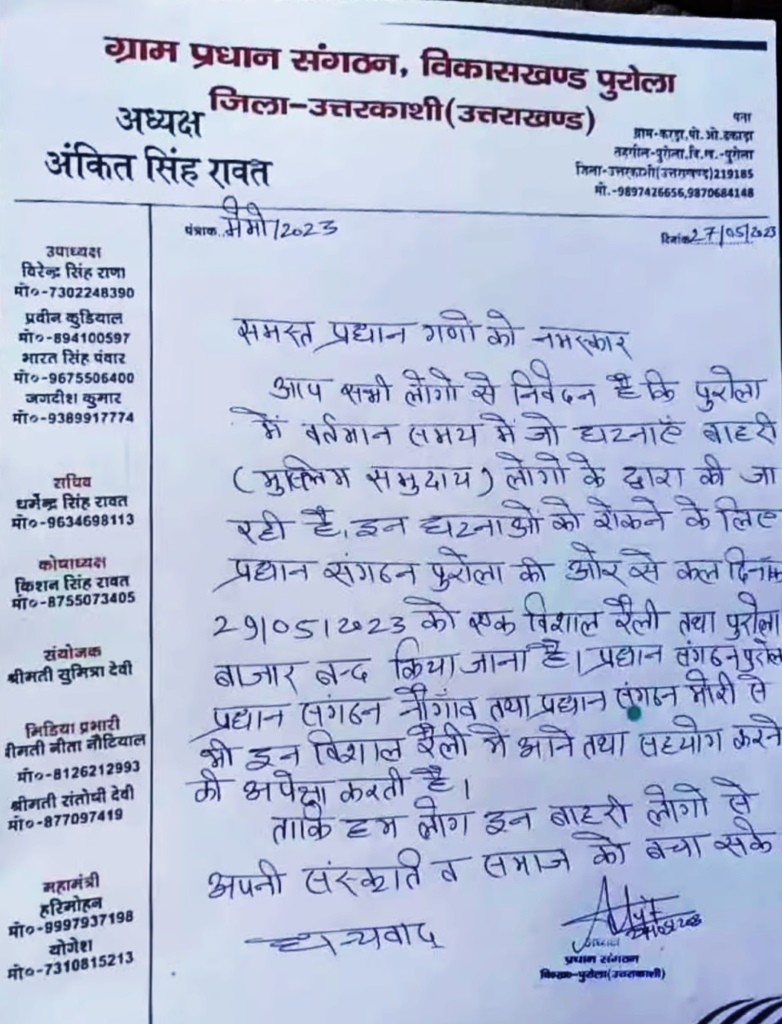 ग्राम प्रधान संगठन, विकासखण्ड पुरोला
जिला-उत्तरकाशी(उत्तराखण्ड)
अध्यक्ष
अंकित सिंह रावत
पता
ग्राम-करड़ा,पो.ओ.
तहसील-पुरोला,वि.ख.-पुरोला
जिला-उत्तरकाशी(उत्तराखण्ड)219185
मो.-9897426656,9870684148
पत्रांक..मैमो/2023
दिनांक27/05/2023
उपाध्यक्ष
विरेन्द्र सिंह राणा
मॉ०-7302248390
प्रवीन कुडियाल
मॉ०-894100597
भारत सिंह पंवार
मॉ०-9675506400
जगदीश कुमार
मॉ०-9389917774
सचिव
धर्मेन्द्र सिंह रावत
मॉ०-9634698113
कोषाध्यक्ष
किशन सिंह रावत
मॉ०-8755073405
संयोजक
श्रीमती सुमित्रा देवी
मिडिया प्रभारी
रीमती नीता नौटियाल
मॉ०-8126212993
श्रीमती संतोषी देवी
मॉ०-877097419
महामंत्री
हरिमोहन
मॉ०-9997937198
योगेश
मॉ०-7310815213
समस्त प्रधान गणों को नमस्कार
आप सभी लोगो से निवेदन है कि पुरोला
में वर्तमान समय में जो घटनाएं बाहरी
(मुस्लिम समुदाय) लोगो के द्वारा की जा
रही है, इन घटनाओं को रोकने के लिए
प्रधान संगठन पुरोला की ओर से कल दिनांक
29/05/2023 को एक विशाल रैली तथा पुरोला
बाजार बन्द किया जाना है। प्रधान संगठन पुरोला
प्रधान संगठन नौगांव तथा प्रधान संगठन मोरी से
भी इन विशाल रैली मे आने तथा सहयोग करने
की अपेक्षा करती है।
ताकि हम लोग इन बाहरी लोगो से
अपनी संस्कृति व समाज को बचा सके
धन्यवाद
प्रधान संगठन
वि०ख०-पुरोला(उत्तरकाशी)